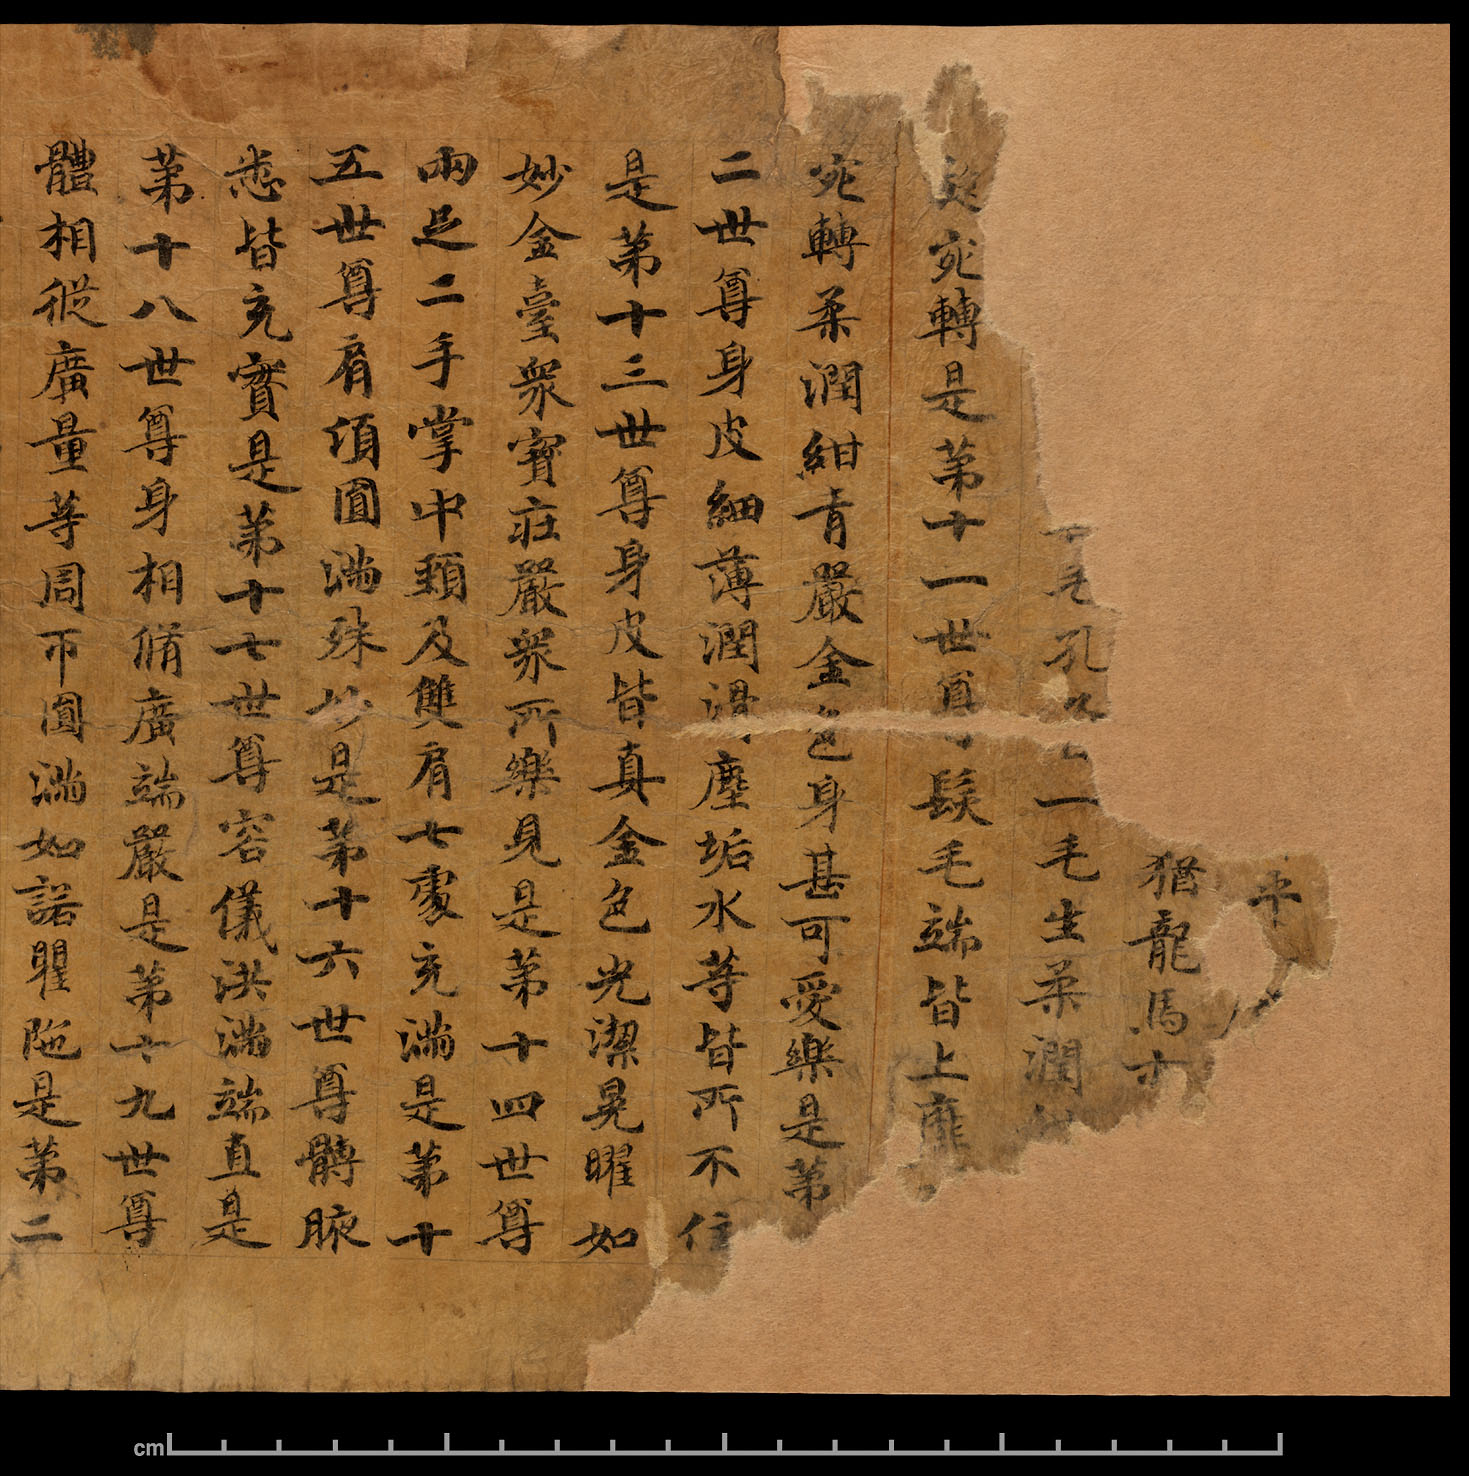 平
猶龍馬
毛孔各一毛生柔潤紺
宛轉是第十一世尊髮毛端皆上靡
宛轉柔潤紺青嚴金色身甚可愛樂是第
二世尊身皮細薄潤滑塵垢水等皆所不住
是第十三世尊身皮皆真金色光潔晃曜如
妙金臺衆寶莊嚴衆所樂見是第十四世尊
兩足二手掌中頸及雙肩七處充滿是第十
五世尊肩項圓滿殊妙是第十六世尊髆腋
悉皆充實是第十七世尊容儀洪滿端直是
第十八世尊身相脩廣端嚴是第十九世尊
體相縱廣量等周帀圓滿如諾瞿陁是第二